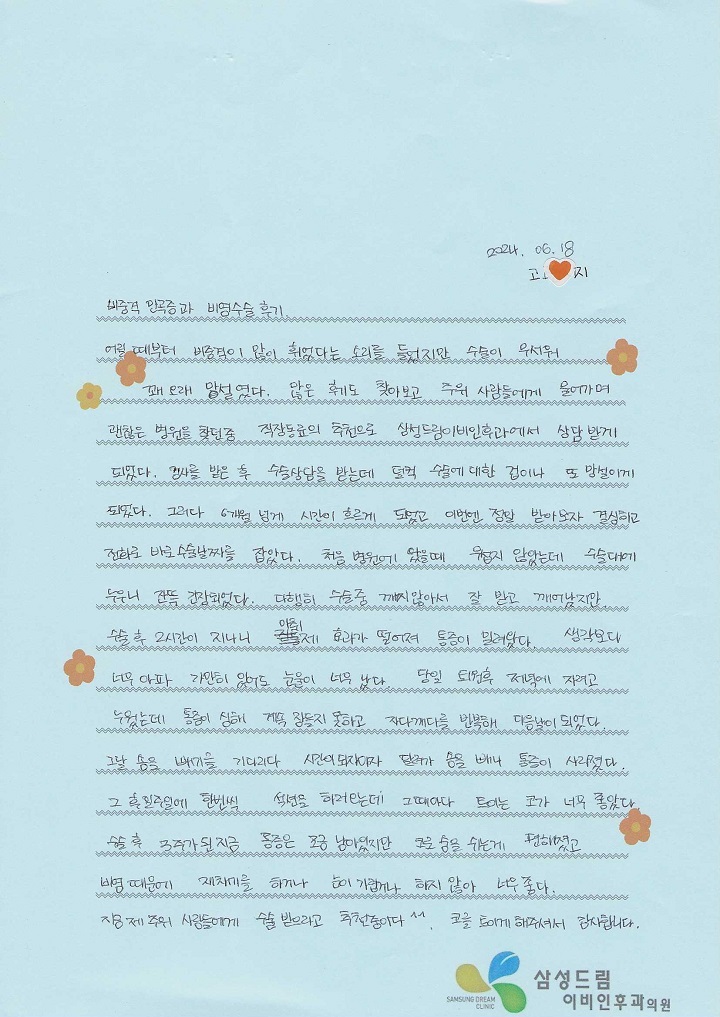 2024. 06. 18
고 지
비중격 만곡증과 비염수술 후기.
어릴 때부터 비중격이 많이 휘었다는 소리를 들었지만 수술이 무서워
꽤 오래 망설였다. 많은 후기도 찾아보고 주위 사람들에게 물어가며
괜찮은 병원을 찾던중 직장동료의 추천으로 삼성드림이비인후과에서 상담 받게
되었다. 검사를 받은 후 수술상담을 받는데 덜컥 수술에 대한 겁이나 또 망설이게
되었다. 그러다 6개월 넘게 시간이 흐르게 되었고 이번엔 정말 받아보자 결심하고
전화로 바로 수술날짜를 잡았다. 처음 병원에 왔을때 무섭지 않았는데 수술대에
누우니 잔뜩 긴장되었다. 다행히 수술중 깨지않아서 잘 받고 깨어났지만,
수술 후 2시간이 지나니 마취제 효과가 떨어져 통증이 밀려왔다. 생각보다
너무 아파 가만히 있어도 눈물이 너무 났다. 당일 퇴원후 저녁에 자려고
누웠는데 통증이 심해 계속 잠들지 못하고 자다깨다를 반복해 다음날이 되었다.
그날 솜을 빼기를 기다리다 시간이 되자마자 달려가 솜을 빼니 통증이 사라졌다.
그 후 일주일에 한번씩 석션을 하러오는데 그때마다 트이는 코가 너무 좋았다
수술 후 3주가 된 지금 통증은 조금 남아있지만 코로 숨을 쉬는게 편해졌고
비염 때문에 재채기를 하거나 눈이 가렵거나 하지 않아 너무 좋다.
지금 제 주위 사람들에게 수술 받으라고 추천중이다 ^^. 코를 트이게 해주셔서 감사합니다.
SAMSUNG DREAM CLINIC
삼성드림
이비인후과의원